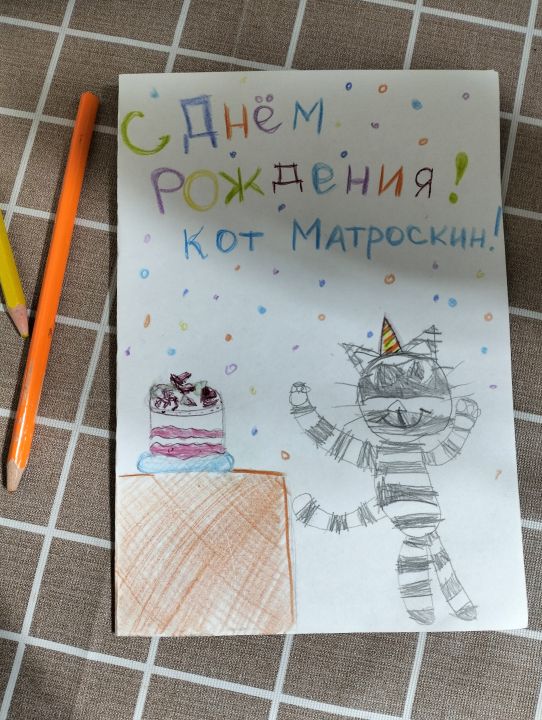 С Днём
Рождения!
Кот Матроскин!